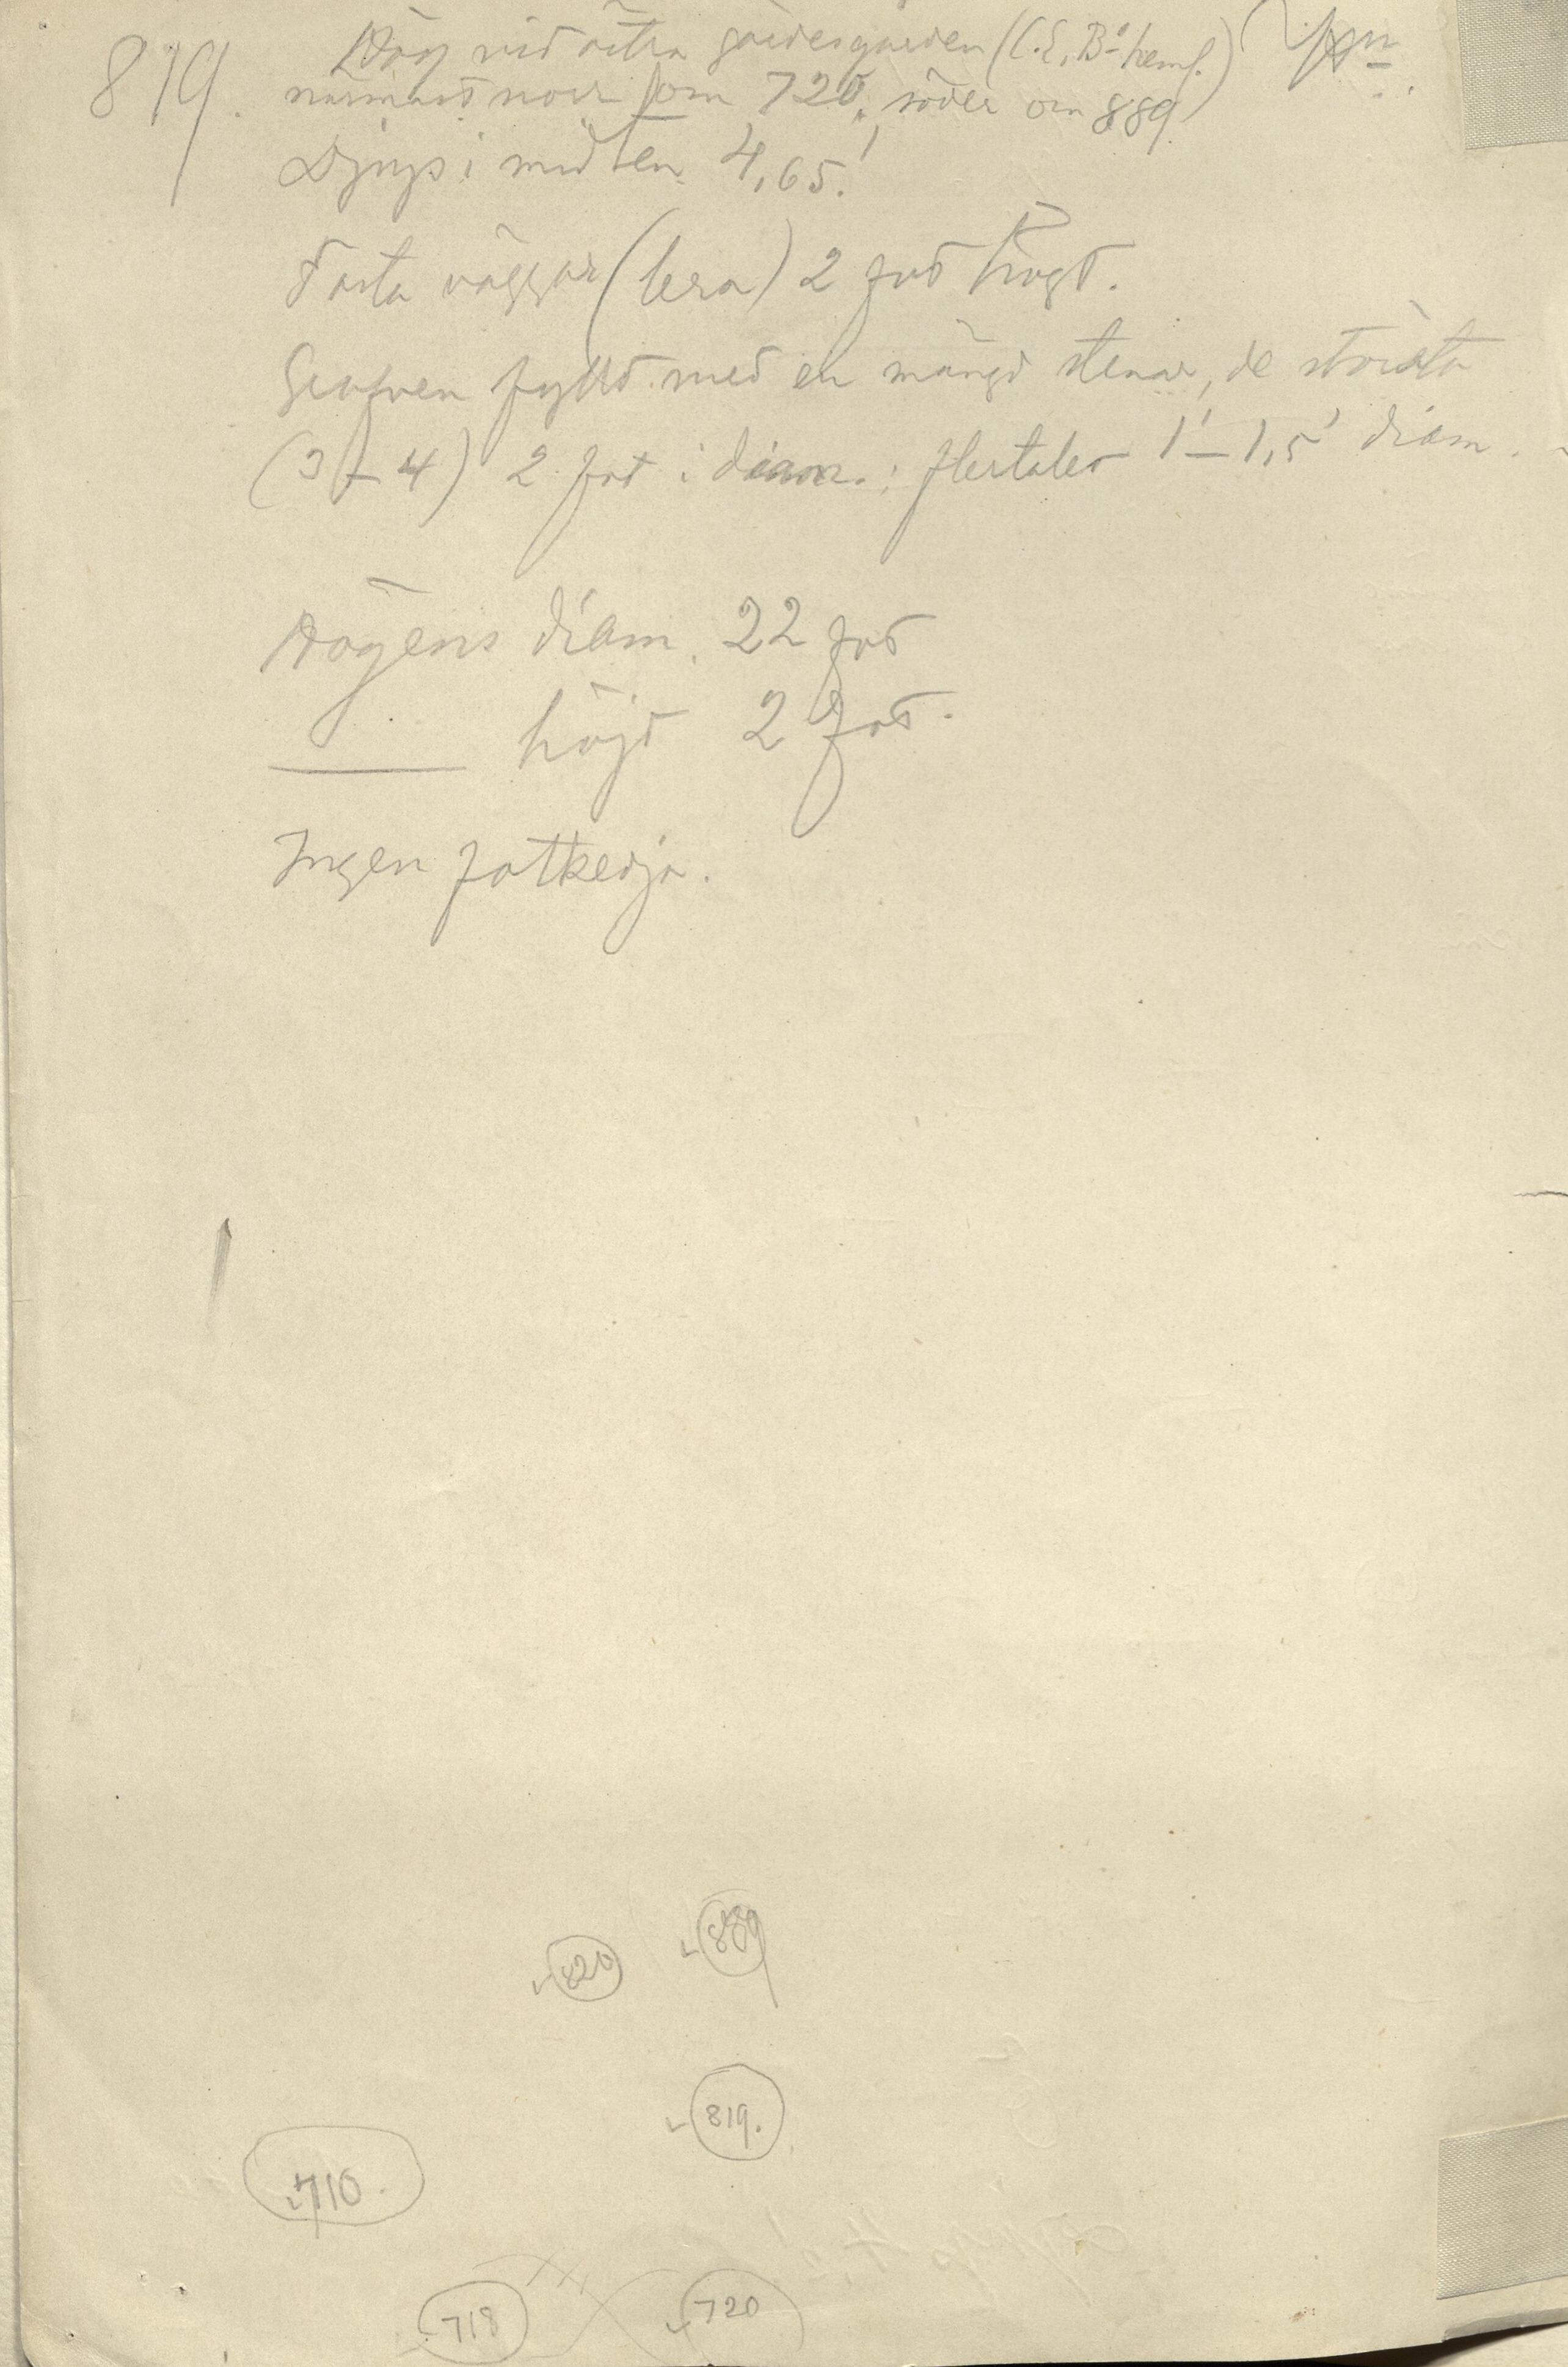 819. Hög vid östra gärdesgården (C.E. B-s heml.)
närmast norr om 720, söder om 889.
Djup i midten 4,65'.
Fasta väggar (lera) 2 fot högt.
Grafven fylld med en mängd stenar, de största
(3 – 4) 2 fot i diam.; flertalet 1' – 1,5' diam.
Högens diam. 22 fot
—— höjd 2 fot.
Ingen fotkedja.
889
820
819.
710.
718
720